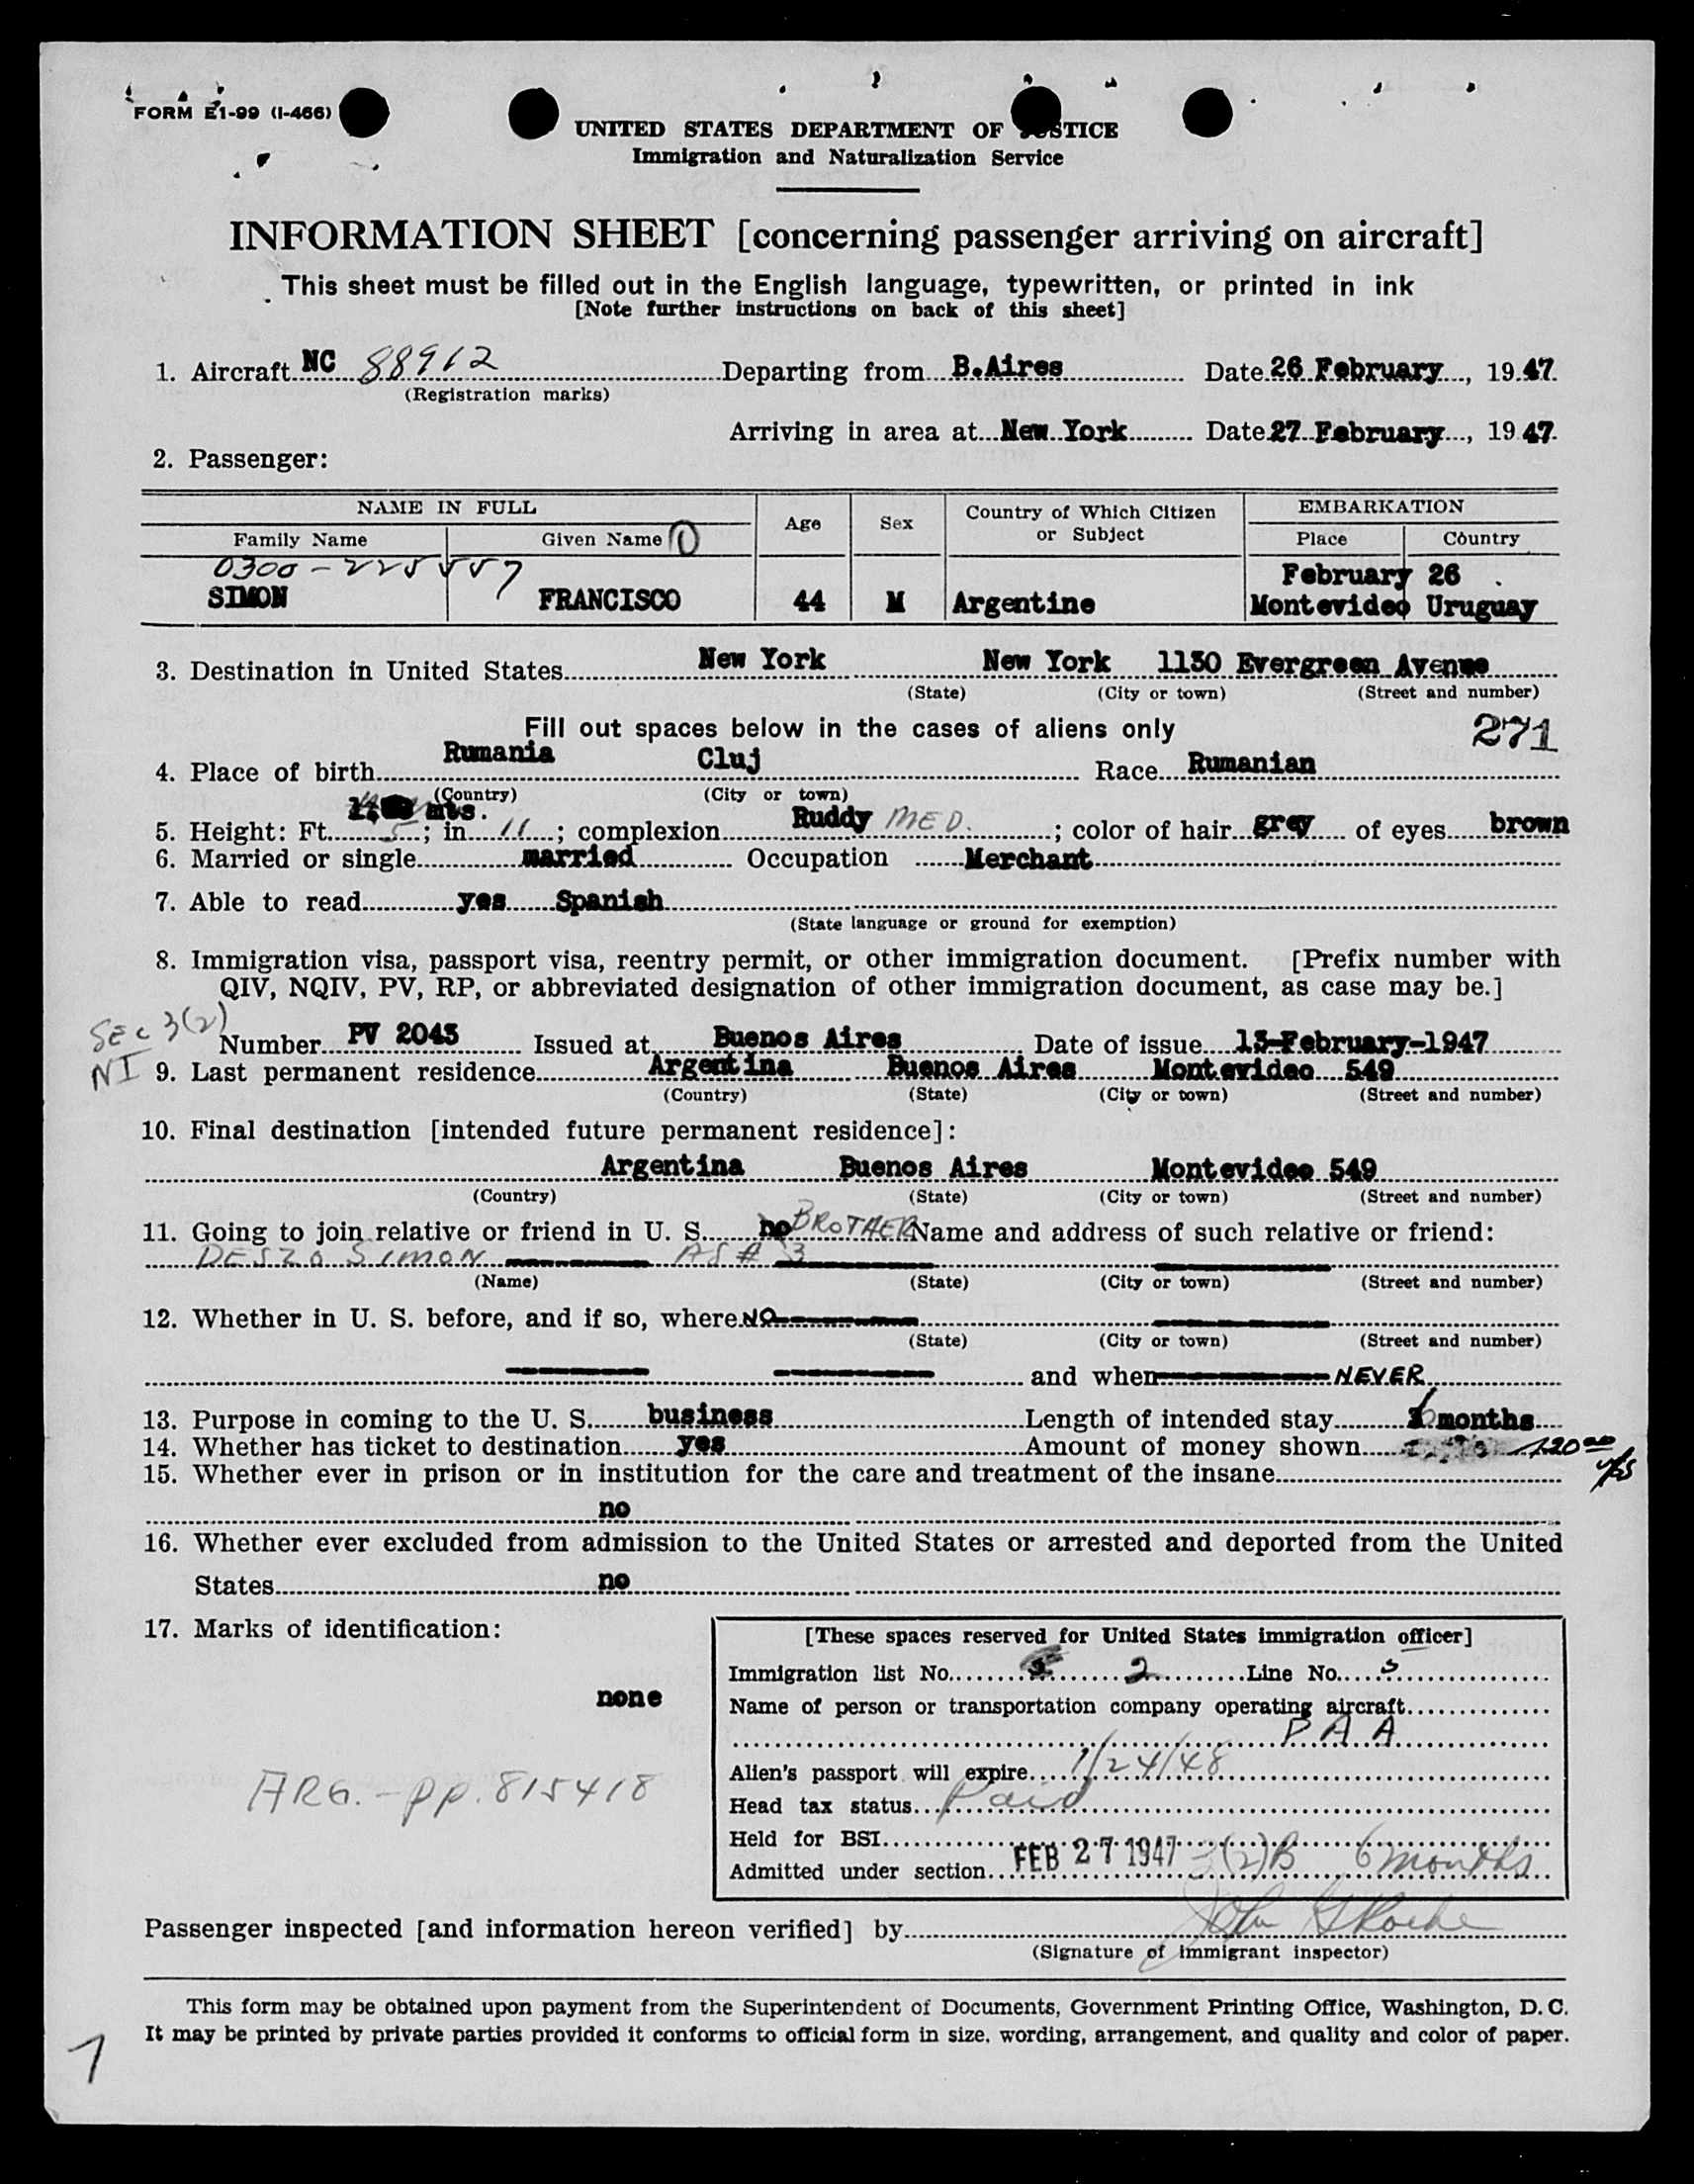 FORM E1-99 (I-466)
UNITED STATES DEPARTMENT OF JUSTICE
Immigration and Naturalization Service
INFORMATION SHEET [concerning passenger arriving on aircraft]
This sheet must be filled out in the English language, typewritten, or printed in ink
[Note further instructions on back of this sheet]
1. Aircraft NC 88912 Departing from B.Aires Date 26 February, 1947.
(Registration marks)
Arriving in area at New York Date 27 February, 1947.
2. Passenger:
NAME IN FULL Age Sex Country of Which Citizen or Subject EMBARKATION
Family Name Given Name Place Country
0300-225557
February 26
SIMON FRANCISCO 44 M Argentine Montevideo Uruguay
3. Destination in United States New York New York 1150 Evergreen Avenue
(State) (City or town) (Street and number)
Fill out spaces below in the cases of aliens only 271
4. Place of birth Rumania Cluj Race Rumanian
(Country) (City or town)
mts.
5. Height: Ft. 5; in. 11; complexion Ruddy MED.; color of hair grey of eyes brown
6. Married or single married Occupation Merchant
7. Able to read yes Spanish
(State language or ground for exemption)
8. Immigration visa, passport visa, reentry permit, or other immigration document. [Prefix number with
QIV, NQIV, PV, RP, or abbreviated designation of other immigration document, as case may be.]
SEC 3(2)
Number PV 2045 Issued at Buenos Aires Date of issue 13-February-1947
NI 9. Last permanent residence Argentina Buenos Aires Montevideo 549
(Country) (State) (City or town) (Street and number)
10. Final destination [intended future permanent residence]:
Argentina Buenos Aires Montevideo 549
(Country) (State) (City or town) (Street and number)
11. Going to join relative or friend in U. S. no BROTHER Name and address of such relative or friend:
DESZO SIMON AS # 3
(Name) (State) (City or town) (Street and number)
12. Whether in U. S. before, and if so, where NO
(State) (City or town) (Street and number)
and when NEVER
13. Purpose in coming to the U. S. business Length of intended stay months
14. Whether has ticket to destination yes Amount of money shown 120 00
15. Whether ever in prison or in institution for the care and treatment of the insane
no
16. Whether ever excluded from admission to the United States or arrested and deported from the United
States no
17. Marks of identification:
none
ARG. - pp. 815418
[These spaces reserved for United States immigration officer]
Immigration list No. 2 Line No. 5
Name of person or transportation company operating aircraft
P A A
Alien's passport will expire 1/24/48
Head tax status Paid
Held for BSI
Admitted under section FEB 27 1947 3(2)B 6 months
Passenger inspected [and information hereon verified] by
(Signature of immigrant inspector)
This form may be obtained upon payment from the Superintendent of Documents, Government Printing Office, Washington, D. C.
It may be printed by private parties provided it conforms to official form in size, wording, arrangement, and quality and color of paper.
1